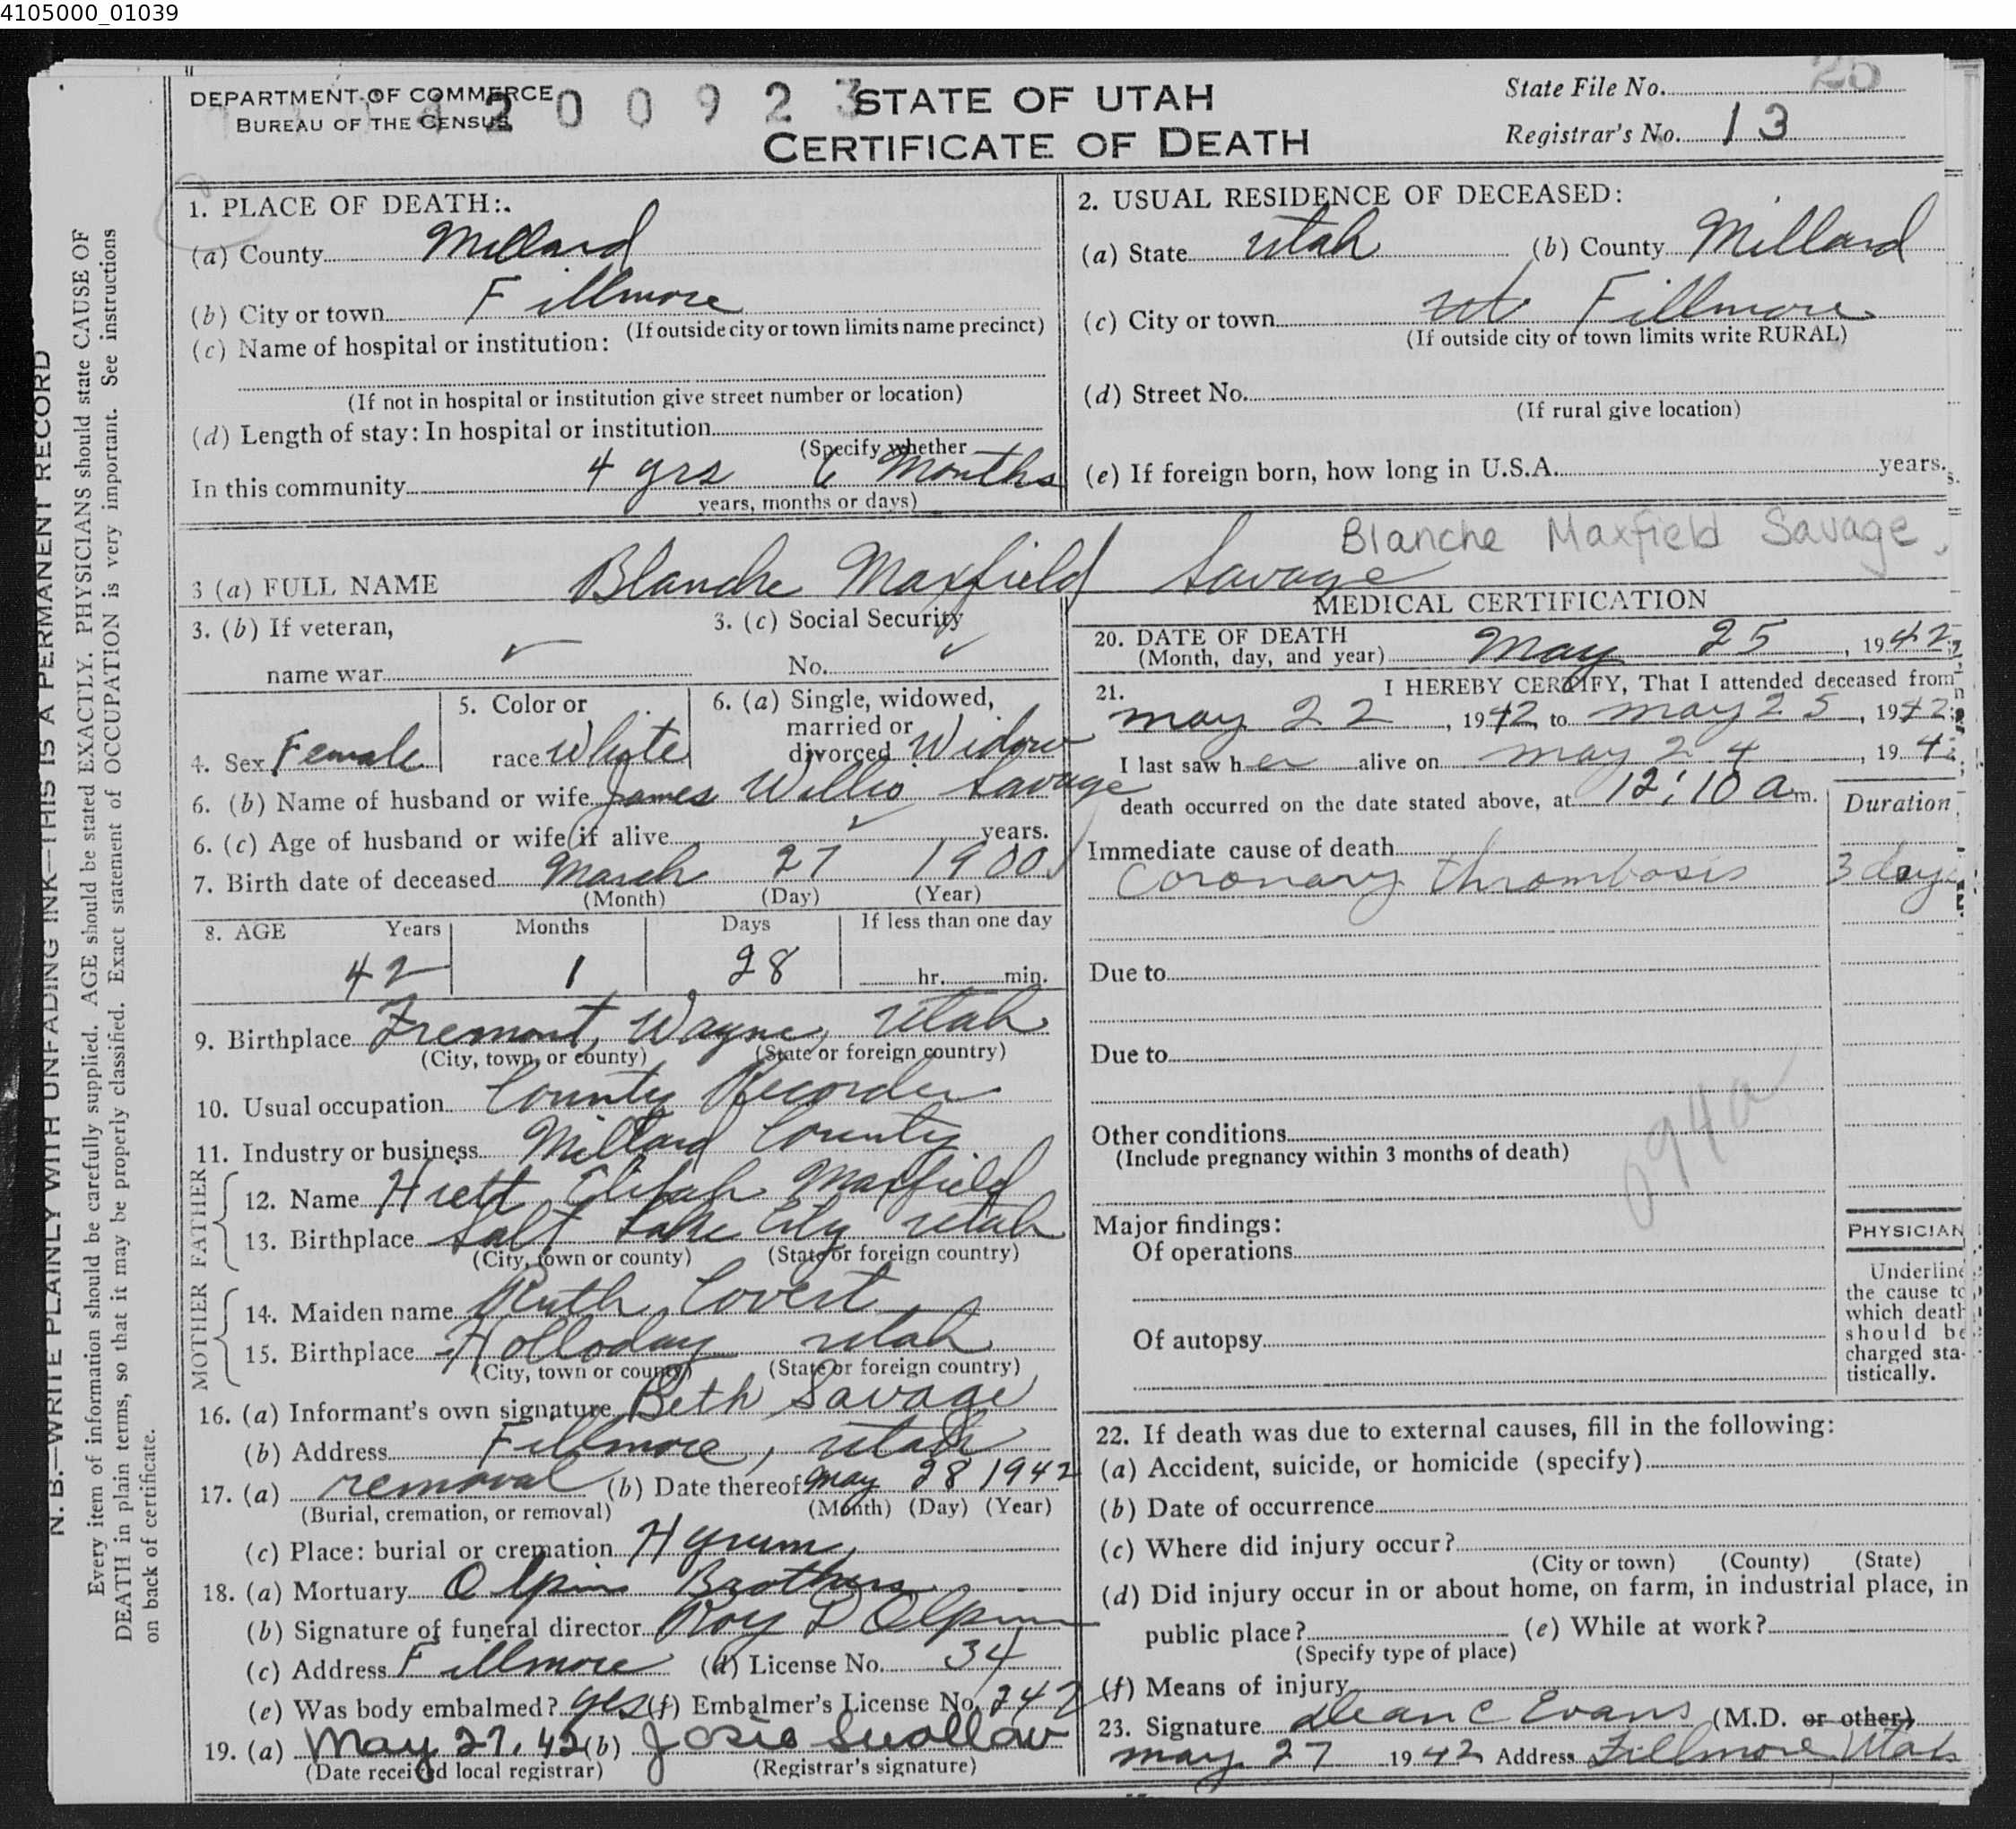 4105000_01039
DEPARTMENT OF COMMERCE
BUREAU OF THE CENSUS
200923
STATE OF UTAH
CERTIFICATE OF DEATH
State File No. 26
Registrar's No. 13
1. PLACE OF DEATH:
(a) County Millard
(b) City or town Fillmore
(If outside city or town limits name precinct)
(c) Name of hospital or institution:
(If not in hospital or institution give street number or location)
(d) Length of stay: In hospital or institution
(Specify whether
In this community 4 yrs 6 Months
years, months or days)
2. USUAL RESIDENCE OF DECEASED:
(a) State Utah (b) County Millard
(c) City or town Fillmore
(If outside city or town limits write RURAL)
(d) Street No.
(If rural give location)
(e) If foreign born, how long in U.S.A. years.
Blanche Maxfield Savage
3 (a) FULL NAME Blanche Maxfield Savage
3. (b) If veteran,
name war ✓
3. (c) Social Security
No. ✓
4. Sex Female
5. Color or
race White
6. (a) Single, widowed,
married or
divorced Widow
6. (b) Name of husband or wife James Willis Savage
6. (c) Age of husband or wife if alive ✓ years.
7. Birth date of deceased March 27 1900
(Month) (Day) (Year)
8. AGE Years Months Days If less than one day
42 1 28 hr. min.
9. Birthplace Fremont, Wayne, Utah
(City, town, or county) (State or foreign country)
10. Usual occupation County Recorder
11. Industry or business Millard County
FATHER
12. Name Hiett Elijah Maxfield
13. Birthplace Salt Lake City Utah
(City, town or county) (State or foreign country)
MOTHER
14. Maiden name Ruth Covert
15. Birthplace Holloday Utah
(City, town or county) (State or foreign country)
16. (a) Informant's own signature Beth Savage
(b) Address Fillmore, Utah
17. (a) removal (b) Date thereof May 28 1942
(Burial, cremation, or removal) (Month) (Day) (Year)
(c) Place: burial or cremation Hyrum
18. (a) Mortuary Olpin Brothers
(b) Signature of funeral director Roy D Olpin
(c) Address Fillmore (d) License No. 34
(e) Was body embalmed? yes (f) Embalmer's License No. 242
19. (a) May 27, 42 (b) Josie Swallow
(Date received local registrar) (Registrar's signature)
MEDICAL CERTIFICATION
20. DATE OF DEATH
(Month, day, and year) May 25, 1942
21. I HEREBY CERTIFY, That I attended deceased from
may 22, 1942 to may 25, 1942;
I last saw her alive on may 24, 1942
death occurred on the date stated above, at 12:10 a m.
Duration
Immediate cause of death
Coronary thrombosis 3 days
Due to
Due to
094a
Other conditions
(Include pregnancy within 3 months of death)
Major findings:
Of operations
Of autopsy
PHYSICIAN
Underline
the cause to
which death
should be
charged sta-
tistically.
22. If death was due to external causes, fill in the following:
(a) Accident, suicide, or homicide (specify)
(b) Date of occurrence
(c) Where did injury occur?
(City or town) (County) (State)
(d) Did injury occur in or about home, on farm, in industrial place, in
public place? (e) While at work?
(Specify type of place)
(f) Means of injury
23. Signature Dean C Evans (M.D. or other)
may 27 1942 Address Fillmore Utah
N. B.—WRITE PLAINLY WITH UNFADING INK—THIS IS A PERMANENT RECORD
Every item of information should be carefully supplied. AGE should be stated EXACTLY. PHYSICIANS should state CAUSE OF
DEATH in plain terms, so that it may be properly classified. Exact statement of OCCUPATION is very important. See instructions
on back of certificate.